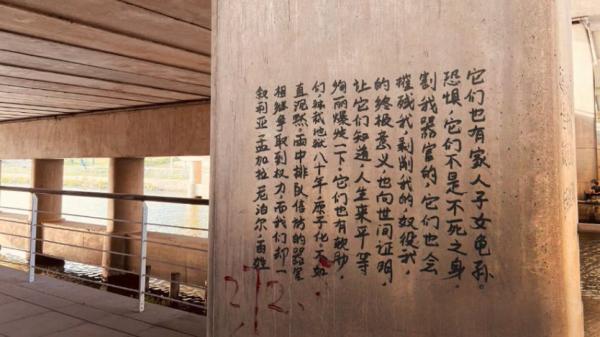 叙利亚,孟加拉,尼泊尔,南韩
相继争取到权力,而我们却一
直沉默,面中排队信访的器官
们,我地狱八十年,原子化不如
绚丽爆燃一下,它们也有软肋,
让它们知道,人生来平等
的终极意义,也向世间证明,
摧残我,剥削我的奴役我,
割我器官的,它们也会
恐惧,它们不是不死之身,
它们也有家人子女龟孙。
272.